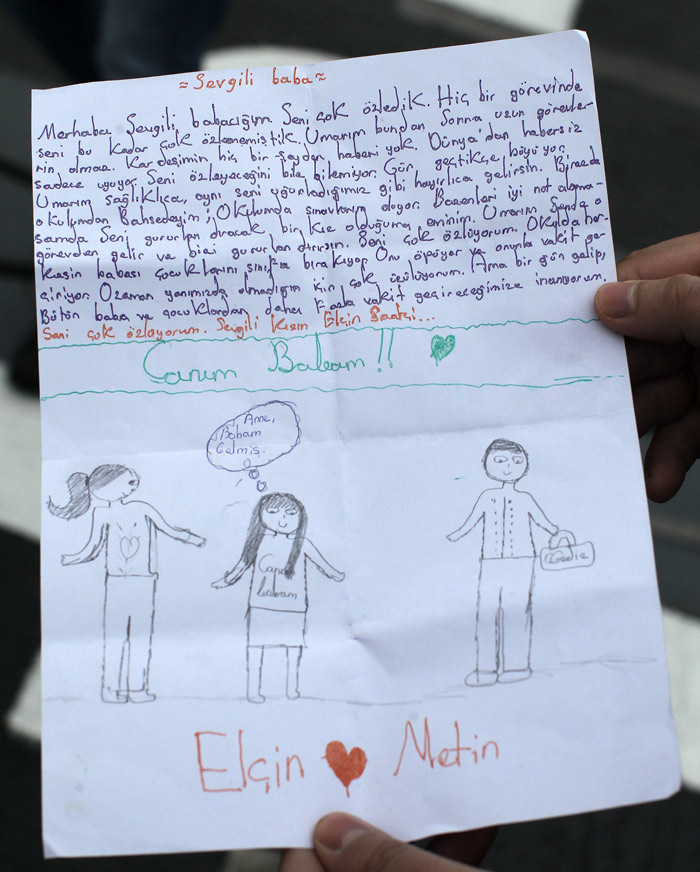 ≈Sevgili baba≈
Merhaba Sevgili babacığım. Seni çok özledik. Hiç bir görevinde
seni bu kadar çok özlememiştik. Umarım bundan sonna uzun görevler-
rin olmaz. Kardeşimin hiç bir şeyden haberi yok. Dünya'dan habersiz
sadece uyuyor. Seni özleyeceğini bile bilemiyor. Gün geçtikçe büyüyor.
Umarım Sağlıklıca, aynı seni uğurladığımız gibi hayırlıca gelirsin. Birazda
okulumdan Bahsedeyim; Okulumda sınavlarım oluyor. Bazenleri iyi not alama-
samda Seni gururlan dıracak bir kız olduğuma eminim. Umarım Sende o
görevden gelir ve bizi gururlan dırırsın. Seni çok özlüyorum. Okulda her-
kesin babası çocuklarını sınıfta bırakıyor. Onu öpüyor ve onunla vakit ge-
çiriyor. Ozaman yanımızda olmadığın için çok üzülüyorum. Ama bir gün gelip,
Bütün baba ve çocuklardan daha fazla vakit geçireceğimize inanıyorum.
Seni çok özlüyorum. Sevgili Kızın Elçin Saatçi...
Canım Babam!!
Anne,
Babam
Gelmiş.
Canım
babam
Elçin Metin